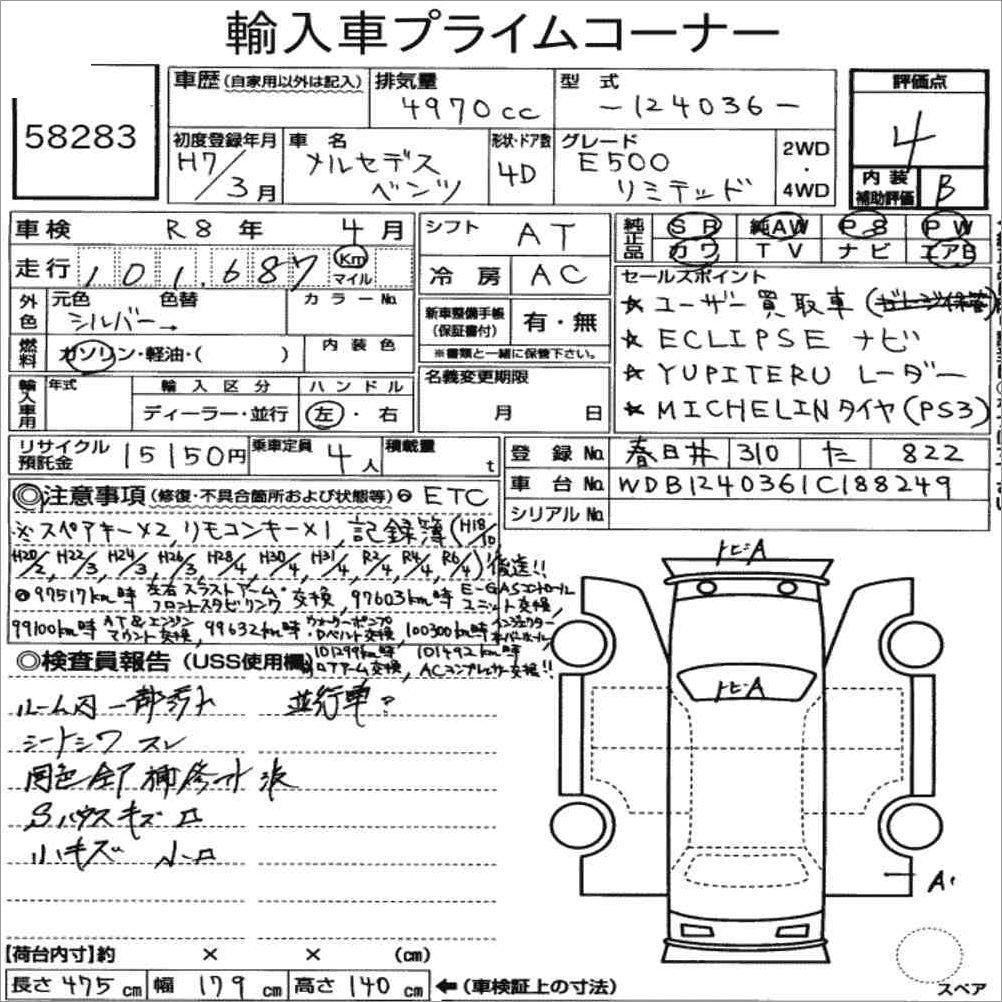 輸入車プライムコーナー
58283
車歴(自家用以外は記入)
排気量 4970cc
型式 -124036-
評価点 4
初度登録年月 H7/3月
車名 メルセデスベンツ
形状・ドア数 4D
グレード E500 リミテッド
2WD・4WD
内装補助評価 B
車検 R8年 4月
シフト AT
純正品 SR 純AW PS PW
カワ TV ナビ エアB
走行 101,687 Km マイル
冷房 AC
セールスポイント
外色 元色 色替 カラーNo.
シルバー→
★ユーザー買取車
新車整備手帳(保証書付) 有・無
★ECLIPSE ナビ
燃料 ガソリン・軽油・( ) 内装色
※書類と一緒に保管下さい。
★YUPITERU レーダー
輸入車用 年式 輸入区分 ハンドル
名義変更期限
★MICHELINタイヤ(PS3)
ディーラー・並行 左・右
月 日
リサイクル預託金 15150円 乗車定員 4人 積載量 t
登録No. 春日井 310 た 822
車台No. WDB1240361C188249
シリアルNo.
◎注意事項(修復・不具合箇所および状態等) ETC
※スペアキー×2,リモコンキー×1,記録簿(H18/10
H20/2,H22/3,H24/3,H26/3,H28/4,H30/4,H31/4,R2/4,R4/4,R6/4)後送!!
97517km時 左右スラストアーム・フロントスタビリンク交換,97603km時 E-GASコントロールユニット交換,
99100km時 AT&エンジンマウント交換,99632km時 ウォーターポンプ・Dベルト交換,100300km時 インジェクターオーバーホール,
101299km時 ロアアーム交換,101492km時 ACコンプレッサー交換!!
◎検査員報告(USS使用欄)
ルーム内一部汚れ 並行車?
シートシワ スレ
Sハウスキズ
小キズ
トビ:A
トビ:A
A1
【荷台内寸】約 × × (cm)
長さ 475cm 幅 179cm 高さ 140cm ←(車検証上の寸法)
スペア